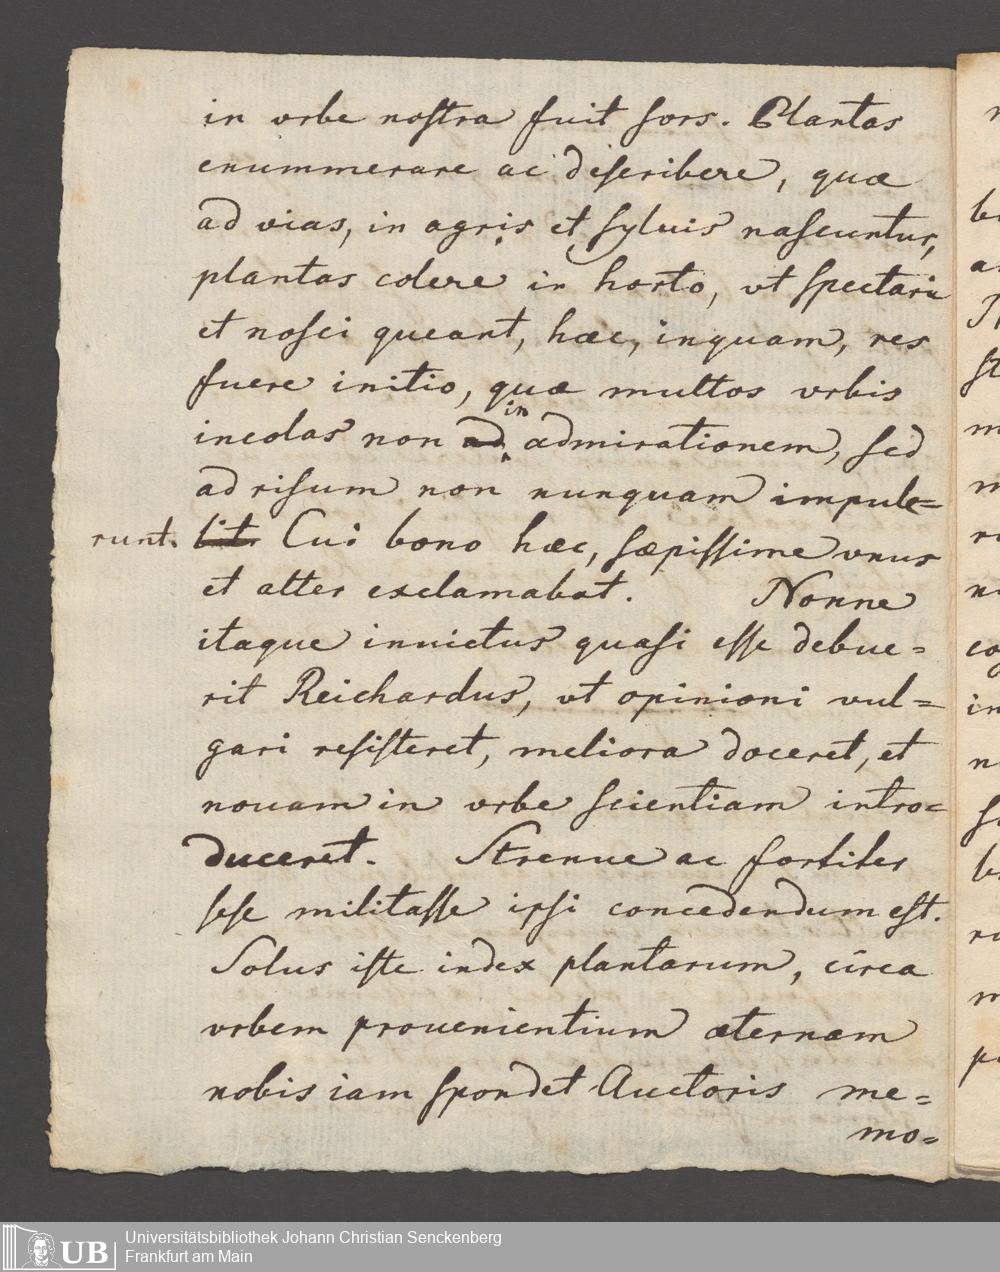 in vrbe noſtra fuit ſors. Plantas
enummerare ac deſcribere, quæ
ad vias, in agris et ſyluis naſcuntur,
plantas colere in horto, vt ſpectari
et noſci queant, hæc, inquam, res
fuere initio, quæ multos vrbis
in
incolas non ad admirationem, ſed
ad riſum non nunquam impule=
runt. lit. Cui bono hæc, ſæpiſſime vnus
et alter exclamabat. Nonne
itaque inuictus quaſi eſſe debue=
rit Reichardus, vt opinioni vul=
gari reſiſteret, meliora doceret, et
nouam in vrbe ſcientiam intro=
duceret. Strenue ac fortiter
ſeſe militaſſe ipſi concedendum eſt.
Solus iſte index plantarum, circa
vrbem prouenientium æternam
nobis iam ſpondet Auctoris me=
mo=
UB
Universitätsbibliothek Johann Christian Senckenberg
Frankfurt am Main